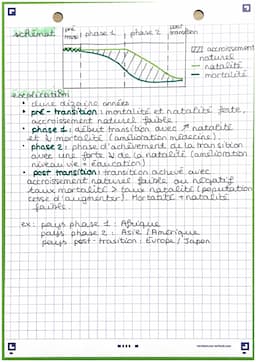 schéma:
pré transi° phase 1 phase 2 post transition
accroissement naturel
natalité
mortalité
explication
• dure dizaine années
• pré-transition: mortalité et natalité forte,
accroissement naturel faible
• phase 1: début transition avec ↗ natalité
et ↘ mortalité (amélioration médecine).
• phase 2: phase d'achèvement de la transition
avec une forte ↘ de la natalité (amélioration
niveau vie + éducation)
• post transition: transition achevé avec
accroissement naturel faible ou négatif
taux mortalité > taux natalité (population
cesse d'augmenter). Mortalité + natalité
faible.
ex: pays phase 1: Afrique
pays phase 2: Asie / Amérique
pays post-trasition: Europe / Japon